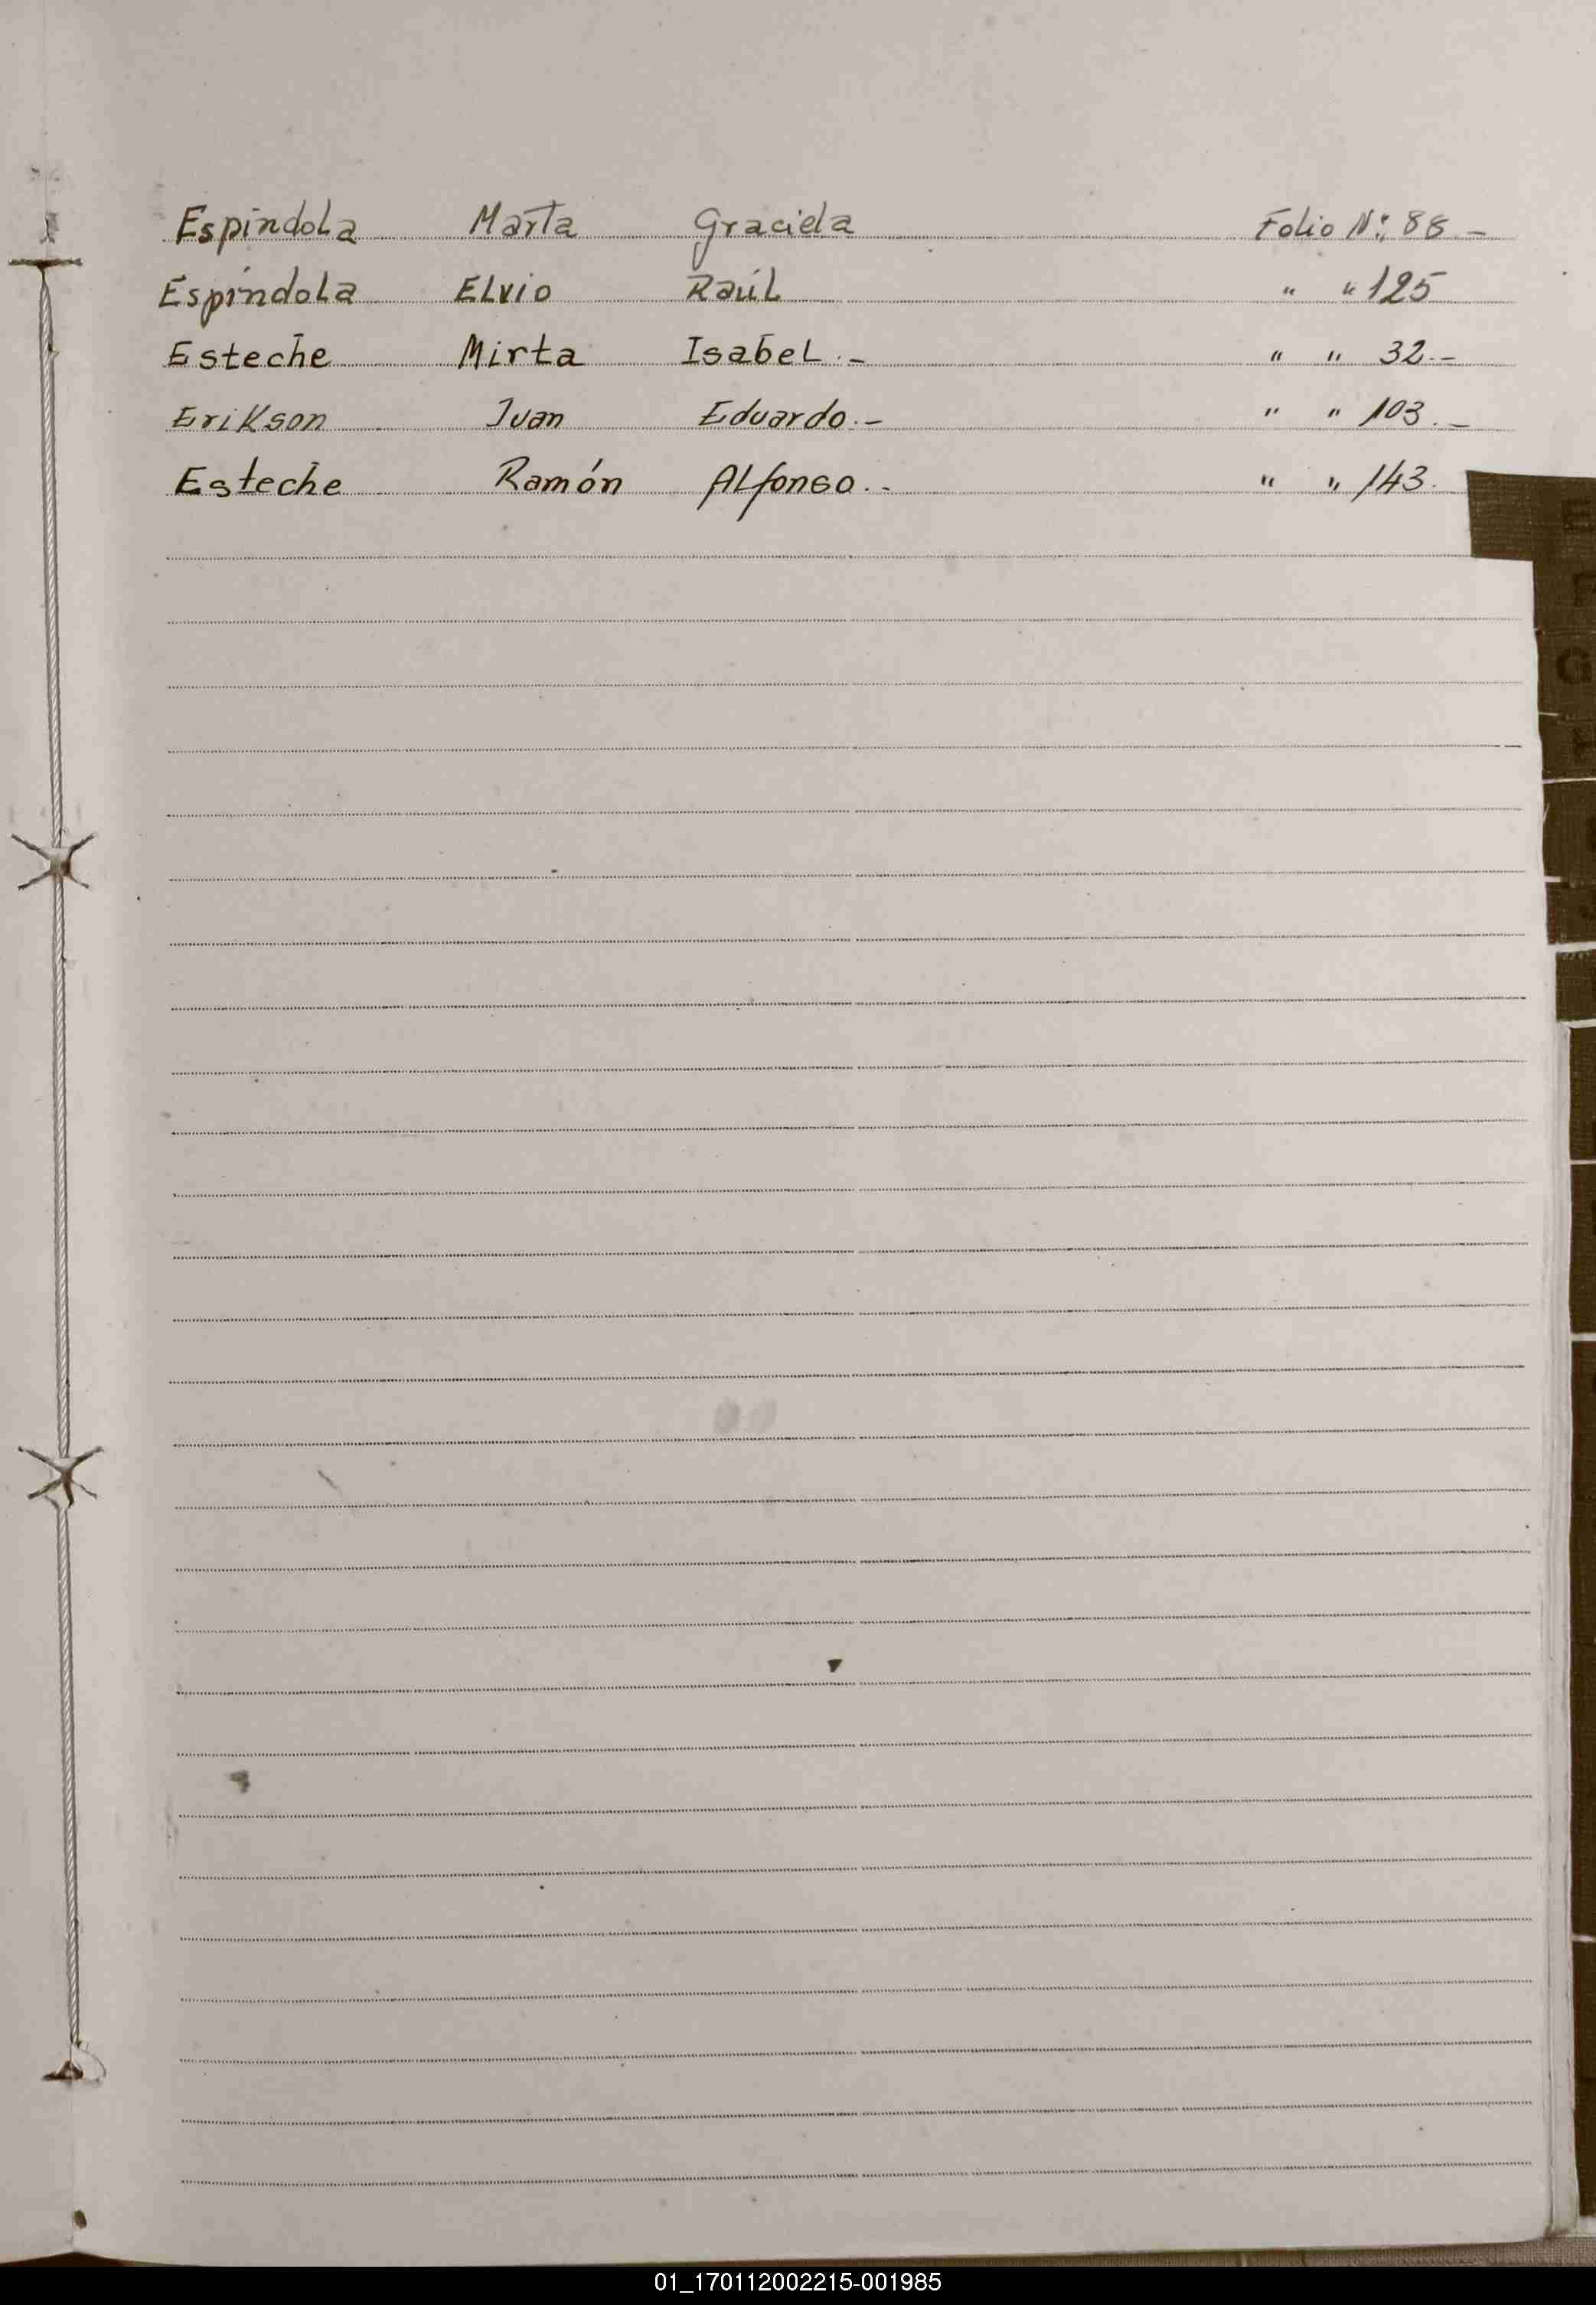 Espíndola Marta Graciela Folio Nº: 88.-
Espíndola Elvio Raúl " " 125
Esteche Mirta Isabel.- " " 32.-
Erikson Juan Eduardo.- " " 103.-
Esteche Ramón Alfonso.- " " 143.
01_170112002215-001985